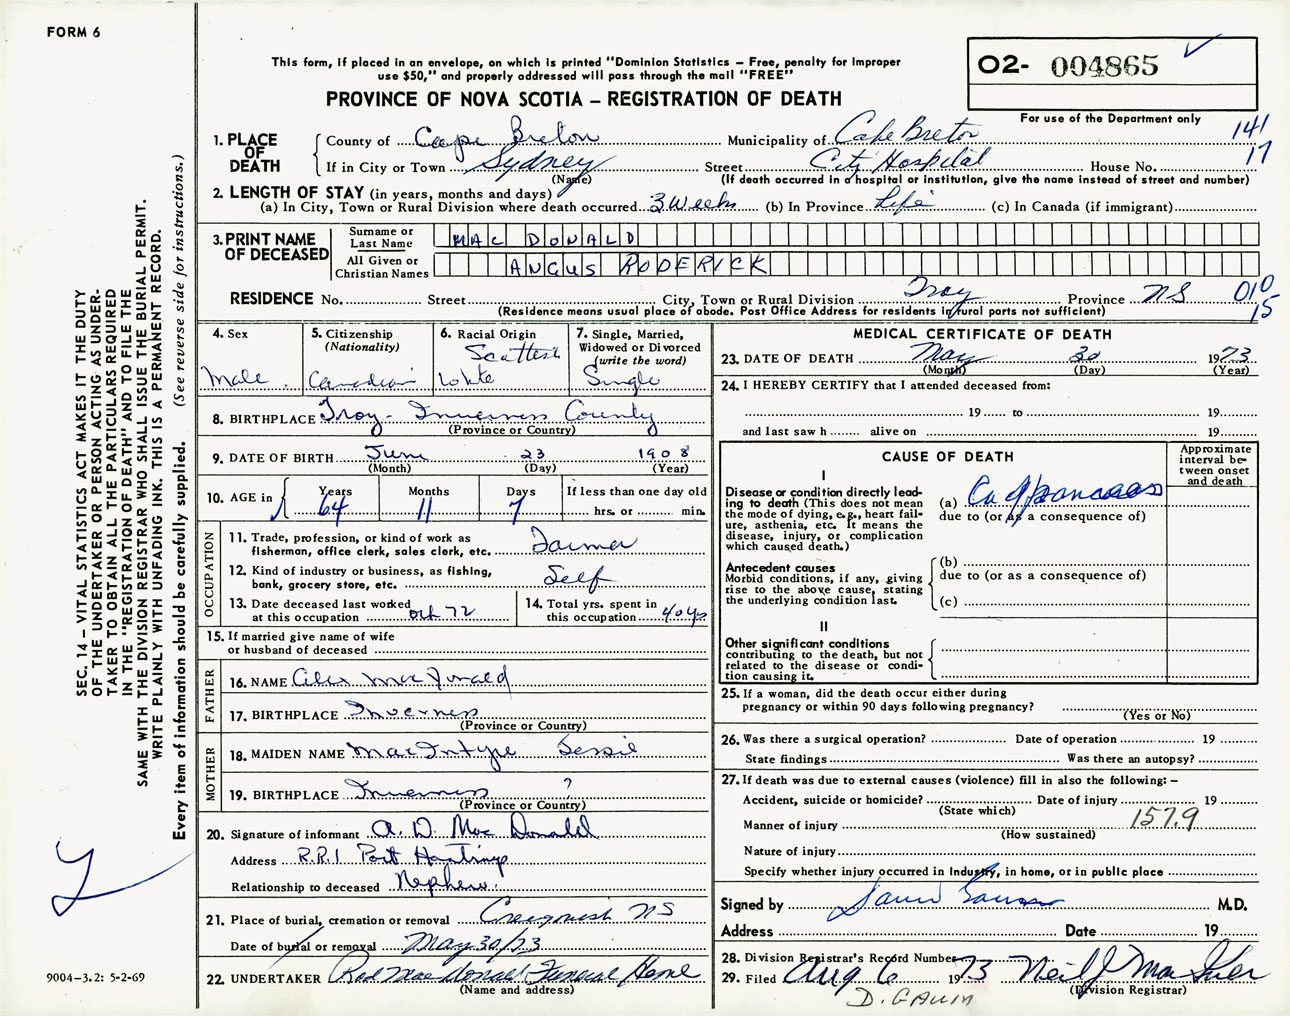 FORM 6
This form, if placed in an envelope, on which is printed "Dominion Statistics – Free, penalty for improper
use $50," and properly addressed will pass through the mail "FREE"
PROVINCE OF NOVA SCOTIA – REGISTRATION OF DEATH
02- 004865
For use of the Department only
141
17
1. PLACE OF DEATH
County of Cape Breton Municipality of Cape Breton
If in City or Town Sydney Street City Hospital House No.
(Name) (If death occurred in a hospital or institution, give the name instead of street and number)
2. LENGTH OF STAY (in years, months and days)
(a) In City, Town or Rural Division where death occurred 3 Weeks (b) In Province Life (c) In Canada (if immigrant)
3. PRINT NAME OF DECEASED
Surname or Last Name MAC DONALD
All Given or Christian Names ANGUS RODERICK
RESIDENCE No. Street City, Town or Rural Division Troy Province NS 010
(Residence means usual place of abode. Post Office Address for residents in rural parts not sufficient) 15
4. Sex
Male
5. Citizenship
(Nationality)
Canadian
6. Racial Origin
Scottish
White
7. Single, Married,
Widowed or Divorced
(write the word)
Single
8. BIRTHPLACE Troy - Inverness County
(Province or Country)
9. DATE OF BIRTH June 23 1908
(Month) (Day) (Year)
10. AGE in
Years Months Days If less than one day old
64 11 7 hrs. or min.
OCCUPATION
11. Trade, profession, or kind of work as
fisherman, office clerk, sales clerk, etc. Farmer
12. Kind of industry or business, as fishing,
bank, grocery store, etc. Self
13. Date deceased last worked
at this occupation Oct. 72
14. Total yrs. spent in
this occupation 40 yrs
15. If married give name of wife
or husband of deceased
FATHER
16. NAME Alex MacDonald
17. BIRTHPLACE Inverness
(Province or Country)
MOTHER
18. MAIDEN NAME MacIntyre Jessie
19. BIRTHPLACE Inverness ?
(Province or Country)
20. Signature of informant A. D. Mac Donald
Address R.R.1 Port Hastings
Relationship to deceased Nephew.
21. Place of burial, cremation or removal Creignish NS
Date of burial or removal May 30/73
22. UNDERTAKER Rod MacDonald Funeral Home
(Name and address)
MEDICAL CERTIFICATE OF DEATH
23. DATE OF DEATH May 30 1973
(Month) (Day) (Year)
24. I HEREBY CERTIFY that I attended deceased from:
19 to 19
and last saw h alive on 19
CAUSE OF DEATH
Approximate
interval be-
tween onset
and death
I
Disease or condition directly lead-
ing to death (This does not mean
the mode of dying, e.g., heart fail-
ure, asthenia, etc. It means the
disease, injury, or complication
which caused death.)
(a) Ca of pancreas
due to (or as a consequence of)
Antecedent causes
Morbid conditions, if any, giving
rise to the above cause, stating
the underlying condition last.
(b)
due to (or as a consequence of)
(c)
II
Other significant conditions
contributing to the death, but not
related to the disease or condi-
tion causing it.
25. If a woman, did the death occur either during
pregnancy or within 90 days following pregnancy?
(Yes or No)
26. Was there a surgical operation? Date of operation 19
State findings Was there an autopsy?
27. If death was due to external causes (violence) fill in also the following: –
Accident, suicide or homicide? Date of injury 19
(State which)
Manner of injury 157.9
(How sustained)
Nature of injury
Specify whether injury occurred in Industry, in home, or in public place
Signed by M.D.
Address Date 19
28. Division Registrar's Record Number
29. Filed Aug 6 1973 Neil J
(Division Registrar)
SEC. 14 – VITAL STATISTICS ACT MAKES IT THE DUTY
OF THE UNDERTAKER OR PERSON ACTING AS UNDER-
TAKER TO OBTAIN ALL THE PARTICULARS REQUIRED
IN THE "REGISTRATION OF DEATH" AND TO FILE THE
SAME WITH THE DIVISION REGISTRAR WHO SHALL ISSUE THE BURIAL PERMIT.
WRITE PLAINLY WITH UNFADING INK. THIS IS A PERMANENT RECORD.
Every item of information should be carefully supplied. (See reverse side for instructions.)
9004-3.2: 5-2-69